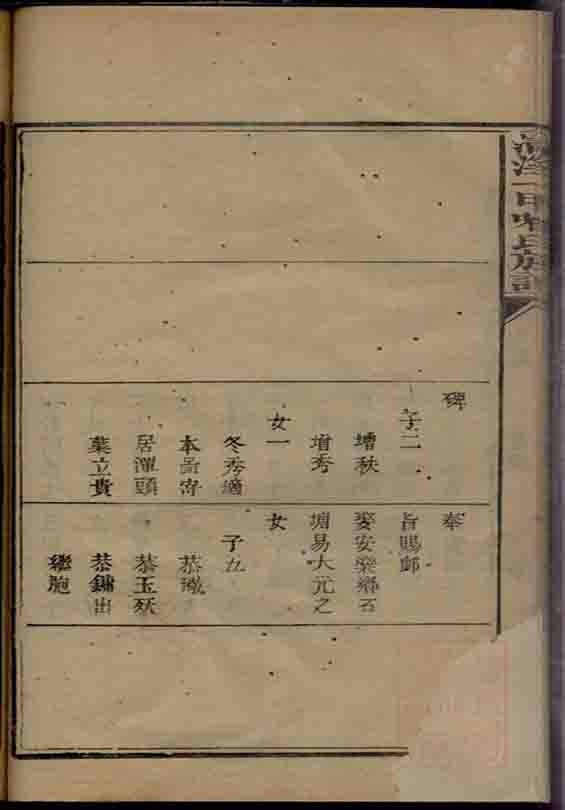 碑
子二
增秩
增秀
女一
冬秀適
本啚寄
居潭頭
葉立貴
奉
旨賜郵
娶安樂鄉石
塘易大元之
女
子五
恭璣
恭玉殀
恭鏽出
繼胞